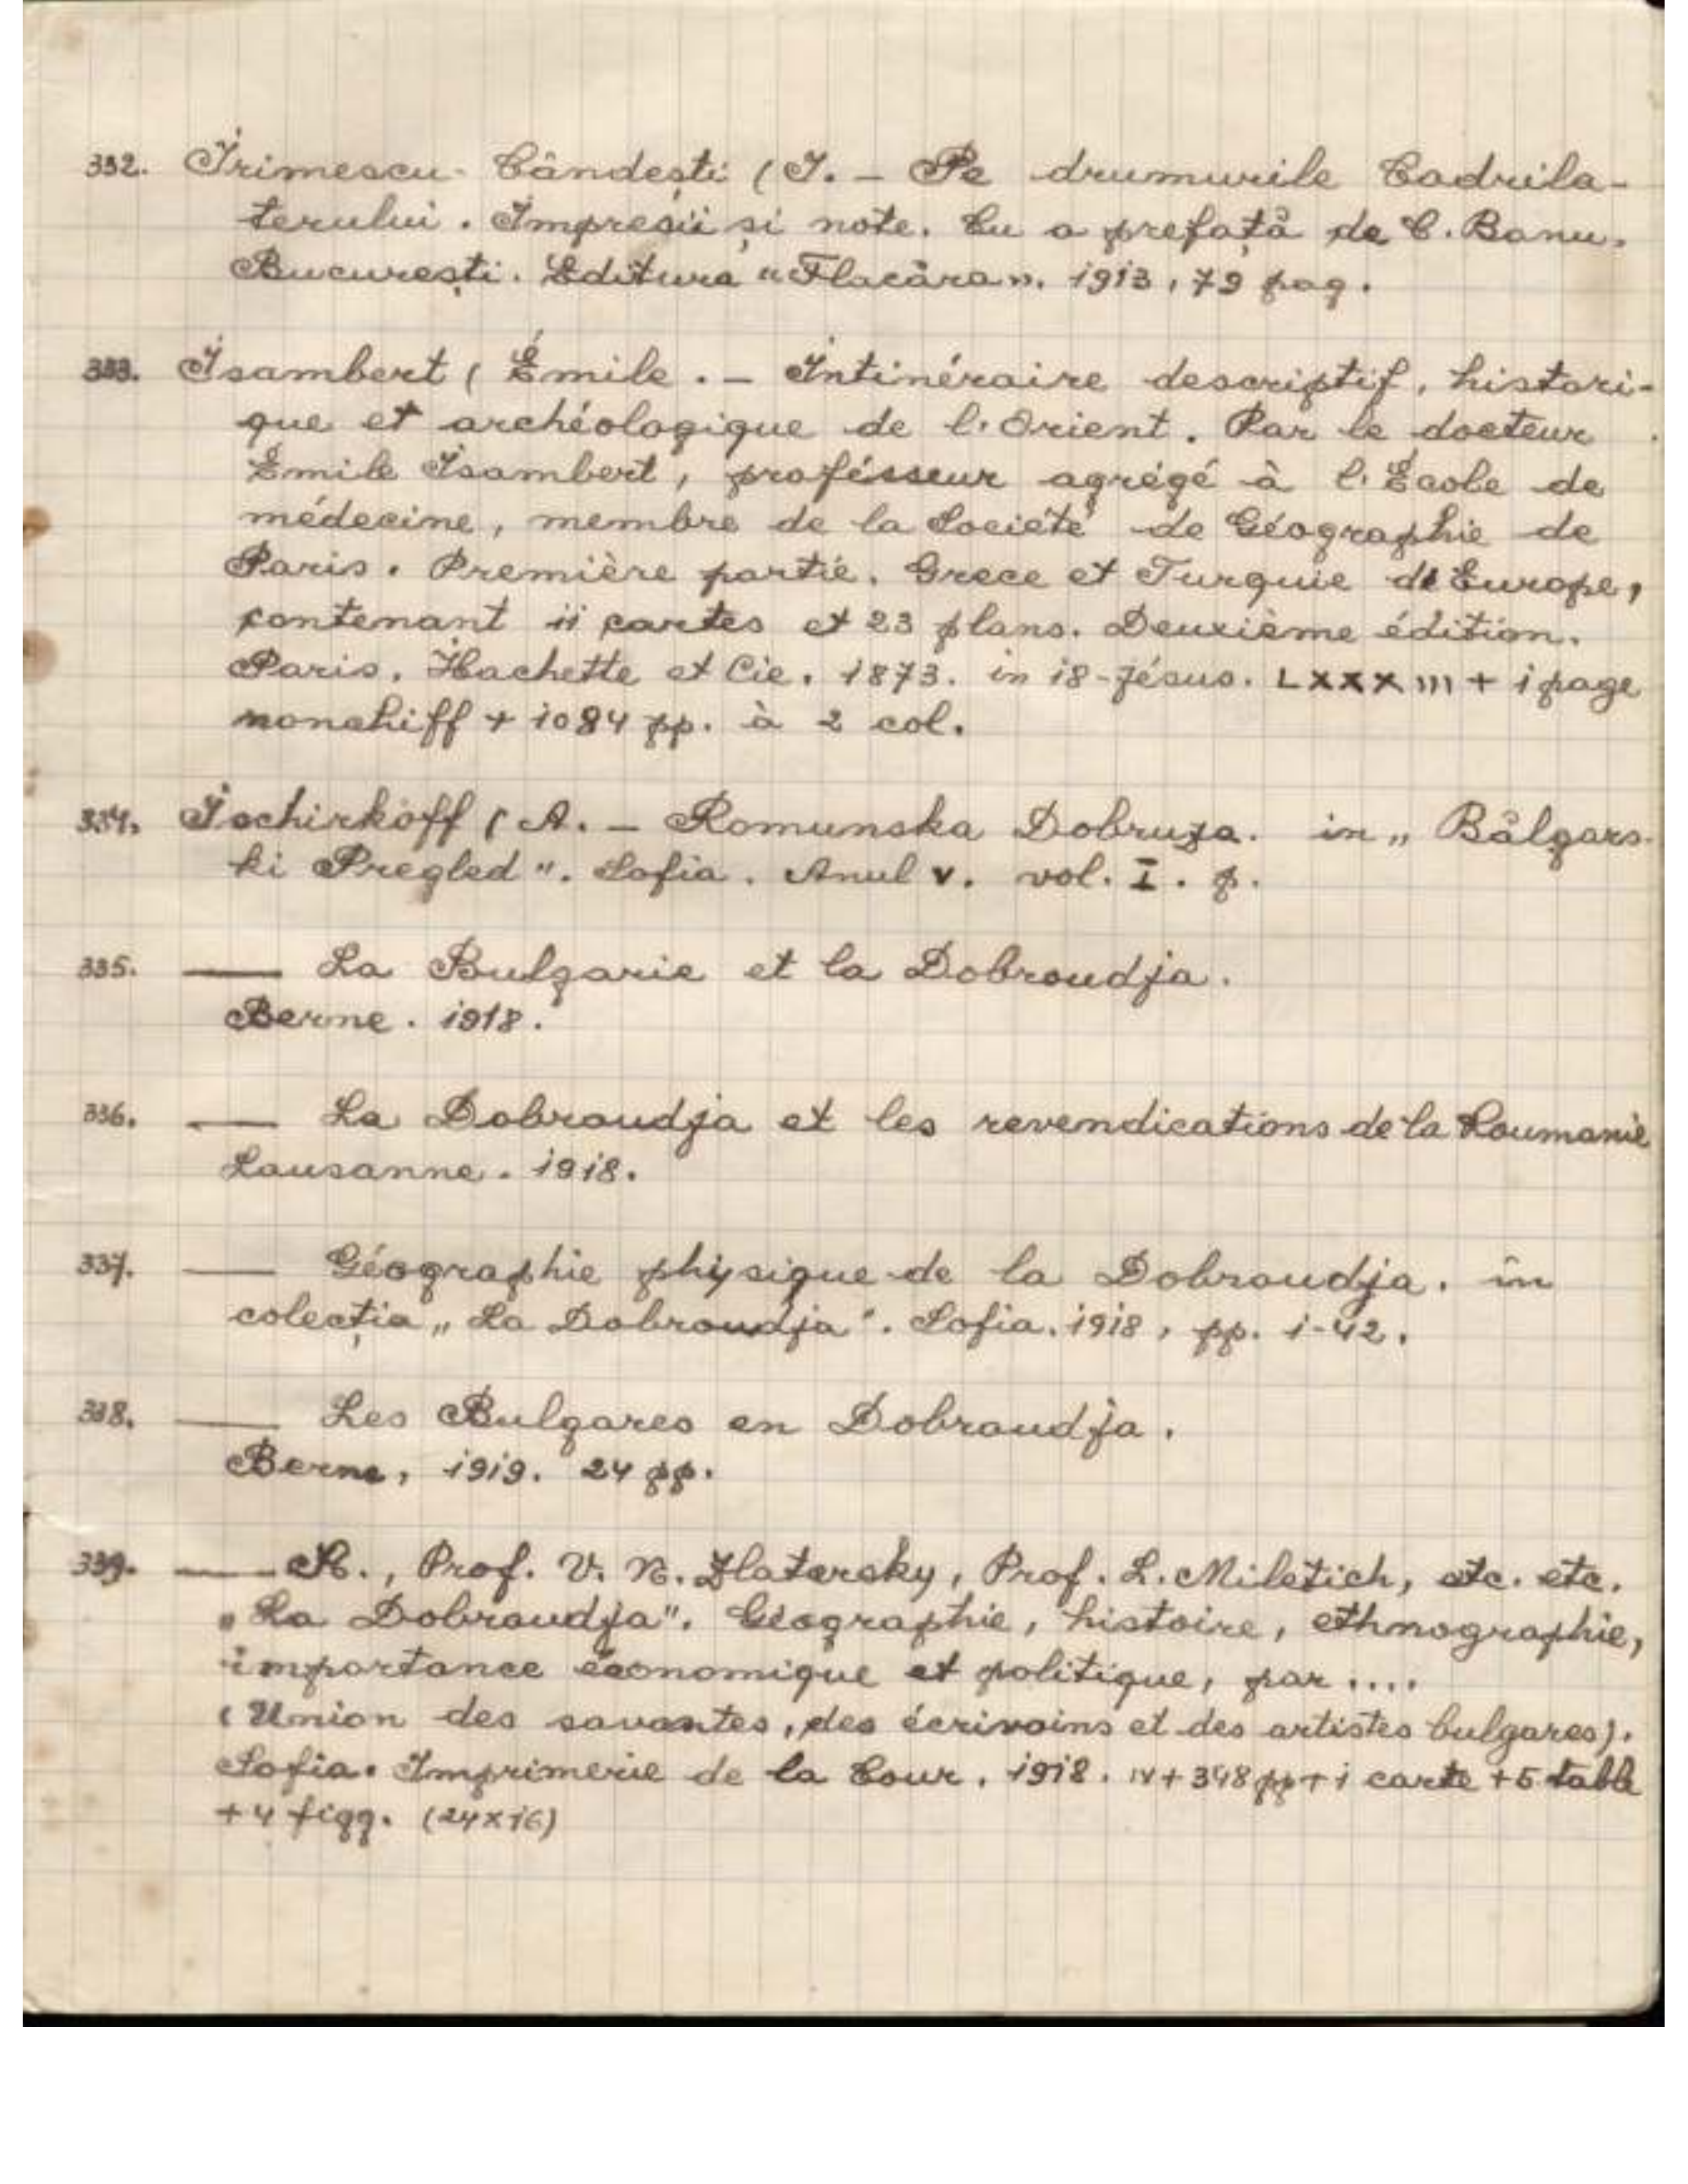 332. Irimescu-Cândești (I. – Pe drumurile Cadrila-
terului. Impresii și note. Cu o prefață de C. Banu.
București. Editura "Flacăra". 1913, 79 pag.
333. Isambert (Émile. – Intinéraire descriptif, histori-
que et archéologique de l'Orient. Par le docteur
Émile Isambert, professeur agrégé à l'École de
médecine, membre de la Societé de Géographie de
Paris. Première partie. Grece et Turquie de Europe,
contenant 11 cartes et 23 plans. Deuxième édition.
Paris. Hachette et Cie. 1873. in 18-Jésus. LXXXIII + 1 page
nonchiff + 1084 pp. à 2 col.
334. Ischirkoff (A. – Romunska Dobruza. in „Bălgars-
ki Pregled". Sofia. Anul V. vol. I. p.
335. — La Bulgarie et la Dobroudja.
Berne. 1918.
336. — La Dobroudja et les revendications de la Roumanie
Lausanne. 1918.
337. — Géographie physique de la Dobroudja. în
colecția „La Dobroudja". Sofia. 1918, pp. 1-42.
338. — Les Bulgares en Dobroudja.
Berne, 1919. 24 pp.
339. — A., Prof. V. N. Zlatarsky, Prof. L. Miletich, etc. etc.
„La Dobroudja". Géographie, histoire, ethnographie,
importance économique et politique, par ....
(Union des savantes, des écrivains et des artistes bulgares).
Sofia. Imprimerie de la Cour. 1918. IV + 348 pp + 1 carte + 5 table
+ 4 figg. (24x16)